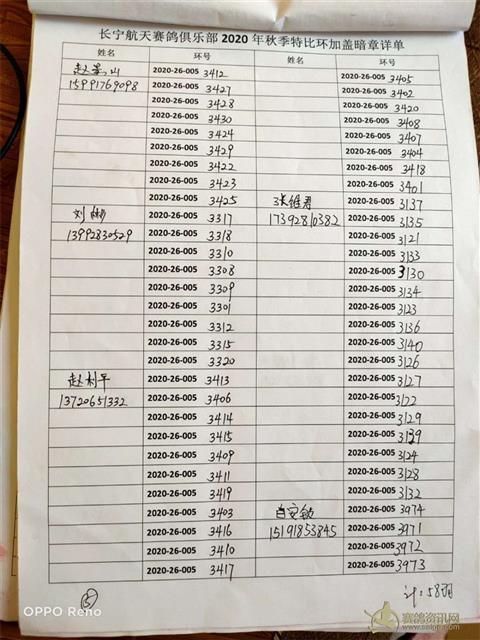 长宁航天赛鸽俱乐部 2020 年秋季特比环加盖暗章详单
姓名 环号 姓名 环号
2020-26-005 3412 2020-26-005 3405
15991769098 2020-26-005 3427 2020-26-005 3402
2020-26-005 3428 2020-26-005 3420
2020-26-005 3430 2020-26-005 3408
2020-26-005 3424 2020-26-005 3407
2020-26-005 3429 2020-26-005 3404
2020-26-005 3422 2020-26-005 3418
2020-26-005 3423 2020-26-005 3401
2020-26-005 3425 张维君 2020-26-005 3137
刘彬 2020-26-005 3317 17392810382 2020-26-005 3135
13992830529 2020-26-005 3318 2020-26-005 3121
2020-26-005 3310 2020-26-005 3133
2020-26-005 3308 2020-26-005 3130
2020-26-005 3309 2020-26-005 3134
2020-26-005 3301 2020-26-005 3123
2020-26-005 3312 2020-26-005 3136
2020-26-005 3315 2020-26-005 3140
2020-26-005 3320 2020-26-005 3126
赵利平 2020-26-005 3413 2020-26-005 3127
13720651332 2020-26-005 3406 2020-26-005 3122
2020-26-005 3414 2020-26-005 3129
2020-26-005 3415 2020-26-005 3139
2020-26-005 3409 2020-26-005 3124
2020-26-005 3411 2020-26-005 3128
2020-26-005 3419 2020-26-005 3132
2020-26-005 3403 白安敏 2020-26-005 3974
2020-26-005 3416 15191853845 2020-26-005 3971
2020-26-005 3410 2020-26-005 3972
2020-26-005 3417 2020-26-005 3973
计:58羽
OPPO Reno
赛鸽资讯网